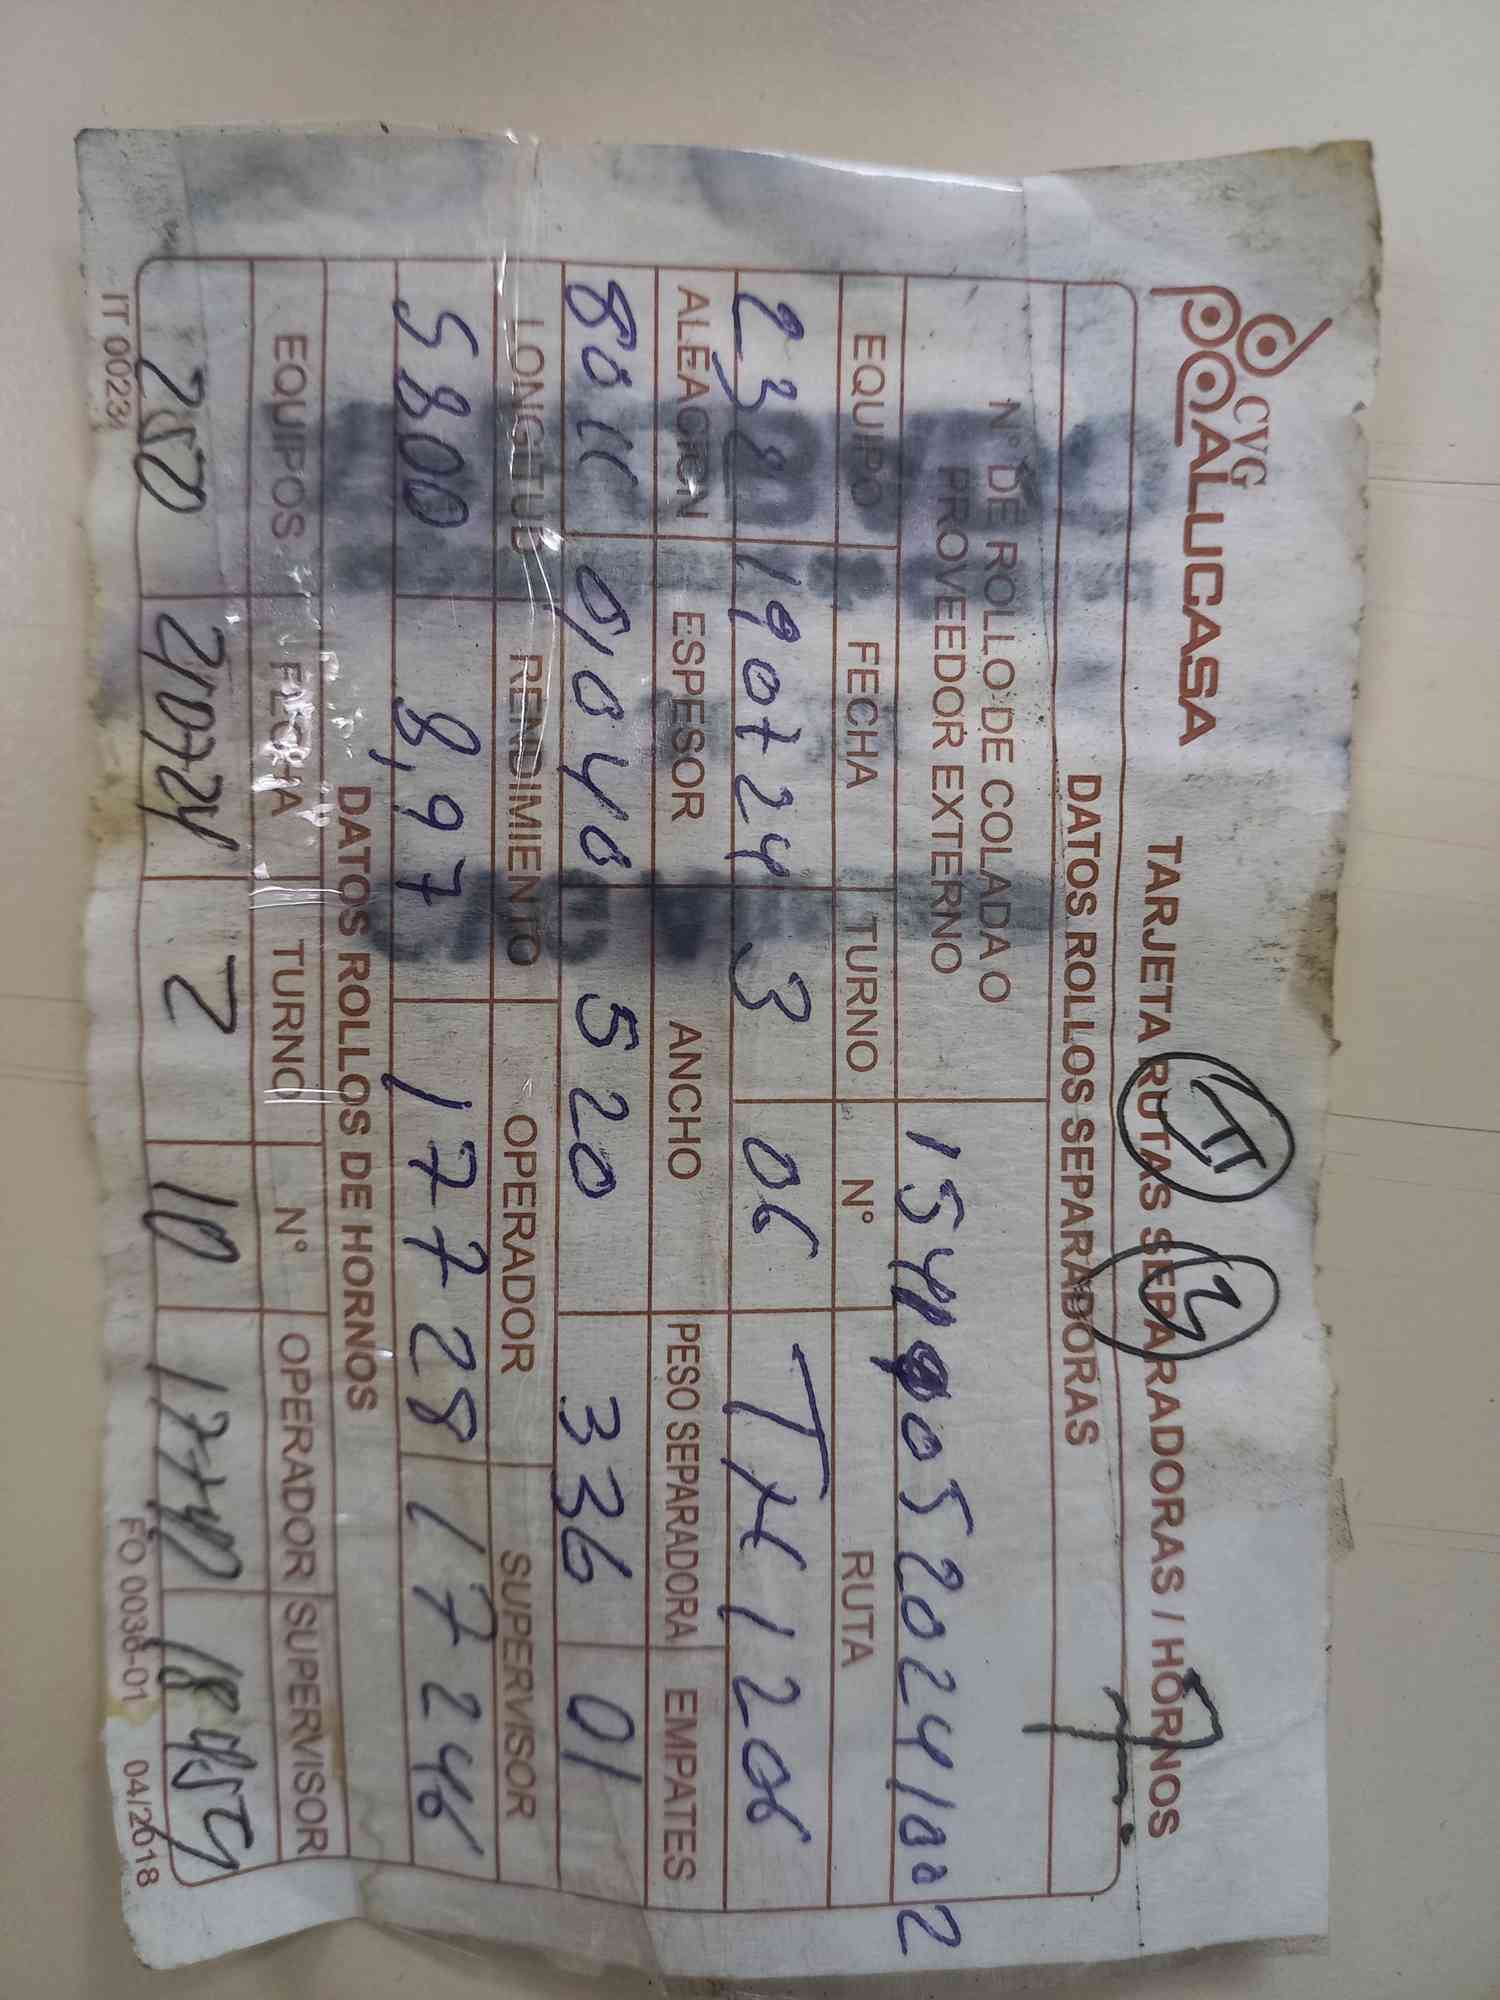 CVG
ALUCASA
TARJETA RUTAS SEPARADORAS / HORNOS
DATOS ROLLOS SEPARADORAS
N° DE ROLLO DE COLADA O
PROVEEDOR EXTERNO
EQUIPO FECHA TURNO N° RUTA
190724 3 06 TH1206
ALEACION ESPESOR ANCHO PESO SEPARADORA EMPATES
8011 0,0040 520 336 01
LONGITUD RENDIMIENTO OPERADOR SUPERVISOR
5800 8,97 17728 17246
DATOS ROLLOS DE HORNOS
EQUIPOS FECHA TURNO N° OPERADOR SUPERVISOR
250 210724 2 10 17740
IT 00234 FO 0036-01 04/2018